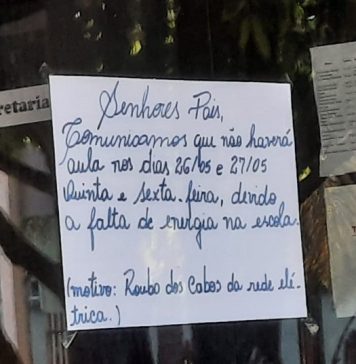 retaria
Senhores Pais,
Comunicamos que não haverá
aula nos dias 26/05 e 27/05
Quinta e sexta-feira, devido
a falta de energia na escola.
(motivo: Roubo dos Cabos da rede elé-
trica.)